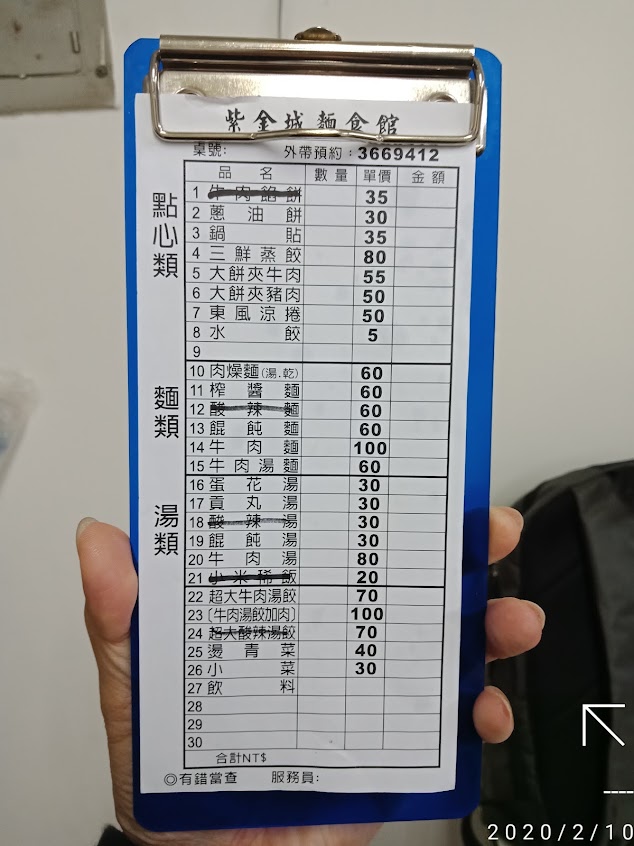 紫金城麵食館
桌號: 外帶預約：3669412
品名 數量 單價 金額
點心類
1 牛肉餡餅 35
2 蔥油餅 30
3 鍋貼 35
4 三鮮蒸餃 80
5 大餅夾牛肉 55
6 大餅夾豬肉 50
7 東風涼捲 50
8 水餃 5
9
麵類
10 肉燥麵(湯.乾) 60
11 榨醬麵 60
12 酸辣麵 60
13 餛飩麵 60
14 牛肉麵 100
15 牛肉湯麵 60
湯類
16 蛋花湯 30
17 貢丸湯 30
18 酸辣湯 30
19 餛飩湯 30
20 牛肉湯 80
21 小米稀飯 20
22 超大牛肉湯餃 70
23 〔牛肉湯餃加肉〕 100
24 超大酸辣湯餃 70
25 燙青菜 40
26 小菜 30
27 飲料
28
29
30
合計NT$
◎有錯當查 服務員:
2020/2/10